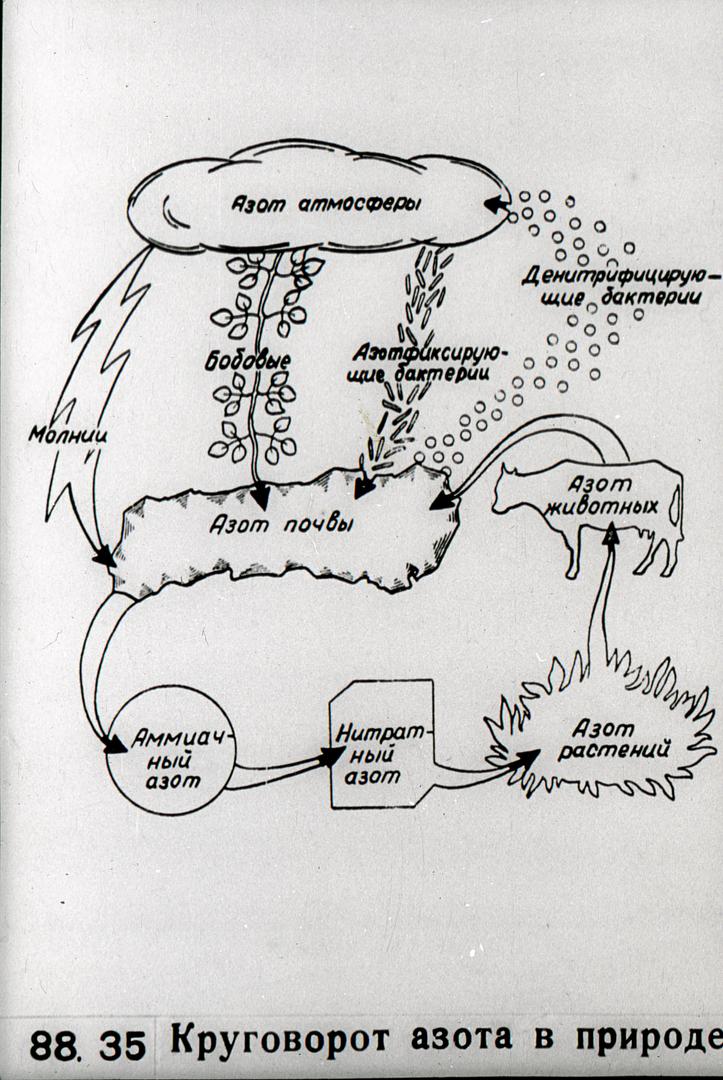 Азот атмосферы
Денитрифицирую-
щие бактерии
Бобовые
Азотфиксирую-
щие бактерии
Молнии
Азот почвы
Азот
животных
Аммиач-
ный
азот
Нитрат-
ный
азот
Азот
растений
88. 35 Круговорот азота в природе